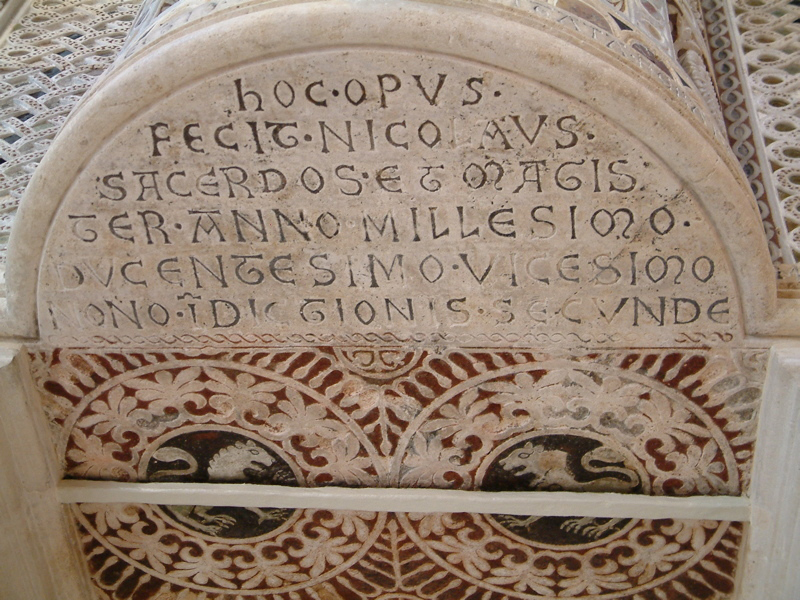 hOC·OPVS·
FECIT·NICOLAVS·
SACERDOS·ET MAGIS
TER·ANNO·MILLESIMO·
DVCENTESIMO·VICESIMO
NONO·ĪDICTIONIS·SECVNDE